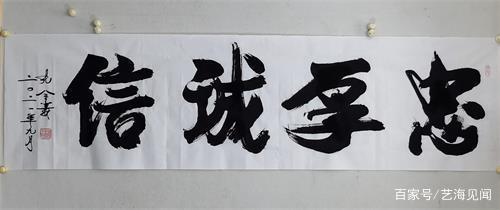 忠厚诚信
二〇二一年九月
百家号/艺海见闻